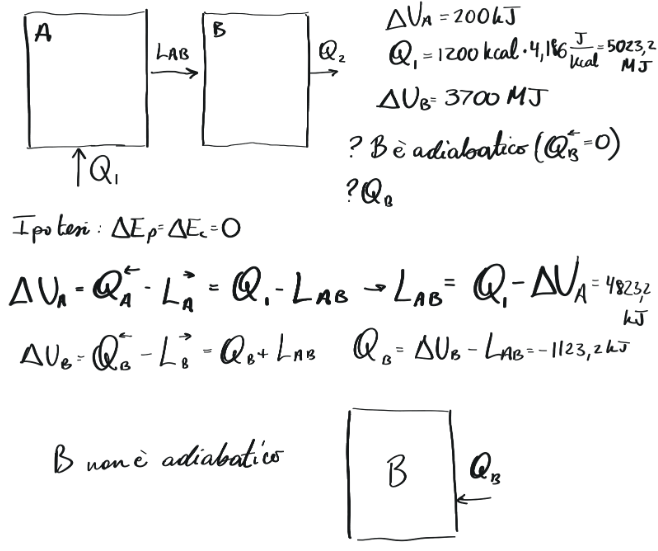 A
L_AB
B
Q_2
Q_1
ΔU_A = 200 kJ
Q_1 = 1200 kcal · 4,186 J/kcal = 5023,2 MJ
ΔU_B = 3700 MJ
? B è adiabatico (Q_B^← = 0)
? Q_B
Ipotesi : ΔE_p = ΔE_c = 0
ΔU_A = Q_A^← - L_A^→ = Q_1 - L_AB → L_AB = Q_1 - ΔU_A = 4823,2 kJ
ΔU_B = Q_B^← - L_B^→ = Q_B + L_AB Q_B = ΔU_B - L_AB = -1123,2 kJ
B non è adiabatico
B
Q_B